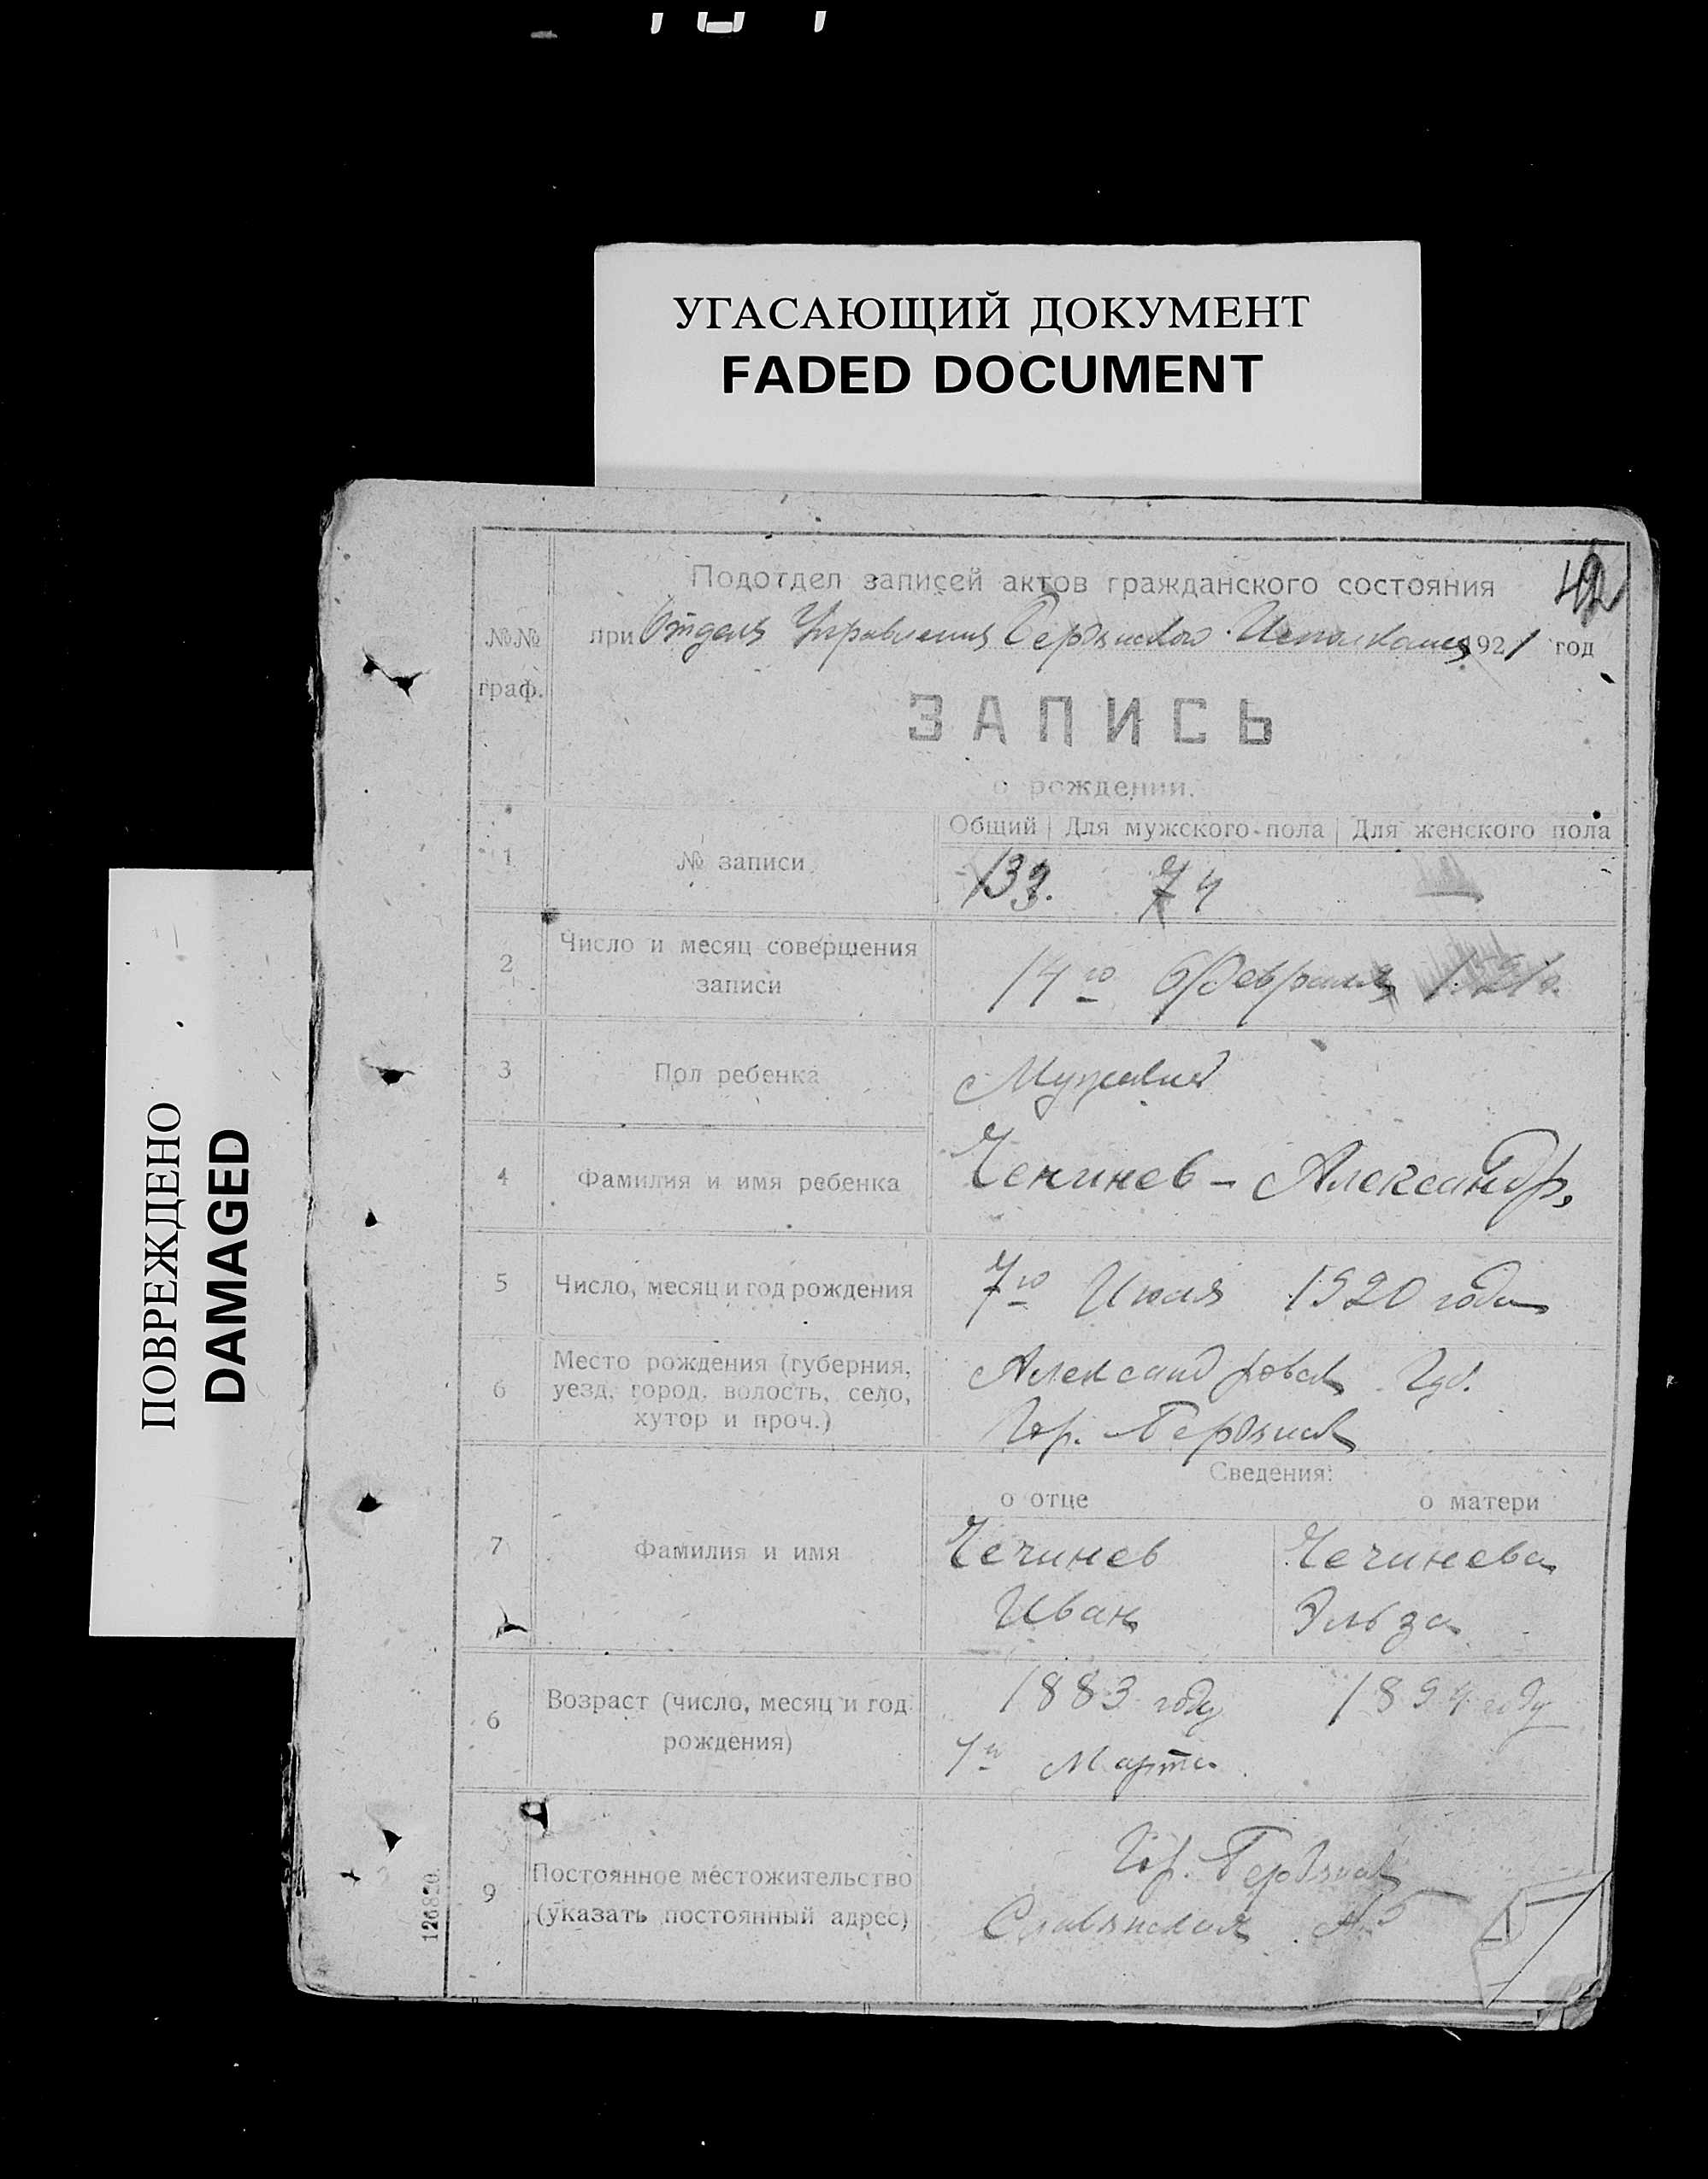 УГАСАЮЩИЙ ДОКУМЕНТ
FADED DOCUMENT
ПОВРЕЖДЕНО
DAMAGED
42
Подотдел записей актов гражданского состояния
№№ граф.
при Отделъ Управления Бердянского Исполкома 1921 год
ЗАПИСЬ
о рождении.
Общий Для мужского пола Для женского пола
1 № записи 133. 74
2 Число и месяц совершения записи
14го Февраля
3 Пол ребенка Мужской
4 Фамилия и имя ребенка Чечинев - Александр
5 Число, месяц и год рождения 7го Июля 1920 года
6 Место рождения (губерния,
уезд, город, волость, село,
хутор и проч.)
Александровск Губ.
Гор. Бердянск
Сведения:
о отце о матери
7 Фамилия и имя
Чечинев Чечинева
Иван Эльза
6 Возраст (число, месяц и год
рождения)
1883 году 1894 году
Марта
9 Постоянное местожительство
(указать постоянный адрес)
Гор. Бердянск
Славянская
126820.